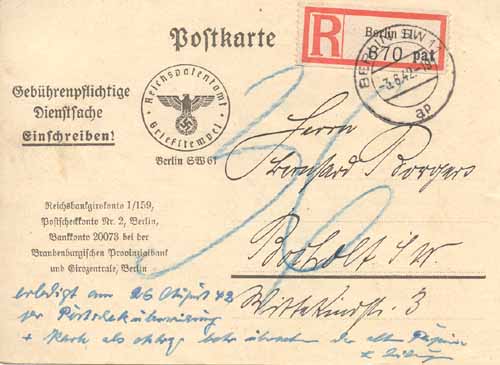 Postkarte
R
Berlin SW 11
870 pat
BERLIN SW 11
-3.6.42.-15
ap
Gebührenpflichtige
Dienstsache
Einschreiben!
Reichspatentamt
Briefstempel
Berlin SW 61
Herrn
Bernhard Borgers
Bocholt i/W.
Wittekindstr. 3
Reichsbankgirokonto 1/159,
Postscheckkonto Nr. 2, Berlin,
Bankkonto 20073 bei der
Brandenburgischen Provinzialbank
und Girozentrale, Berlin
erledigt am 26 August 42
per Postscheküberweisung
+ Karte als